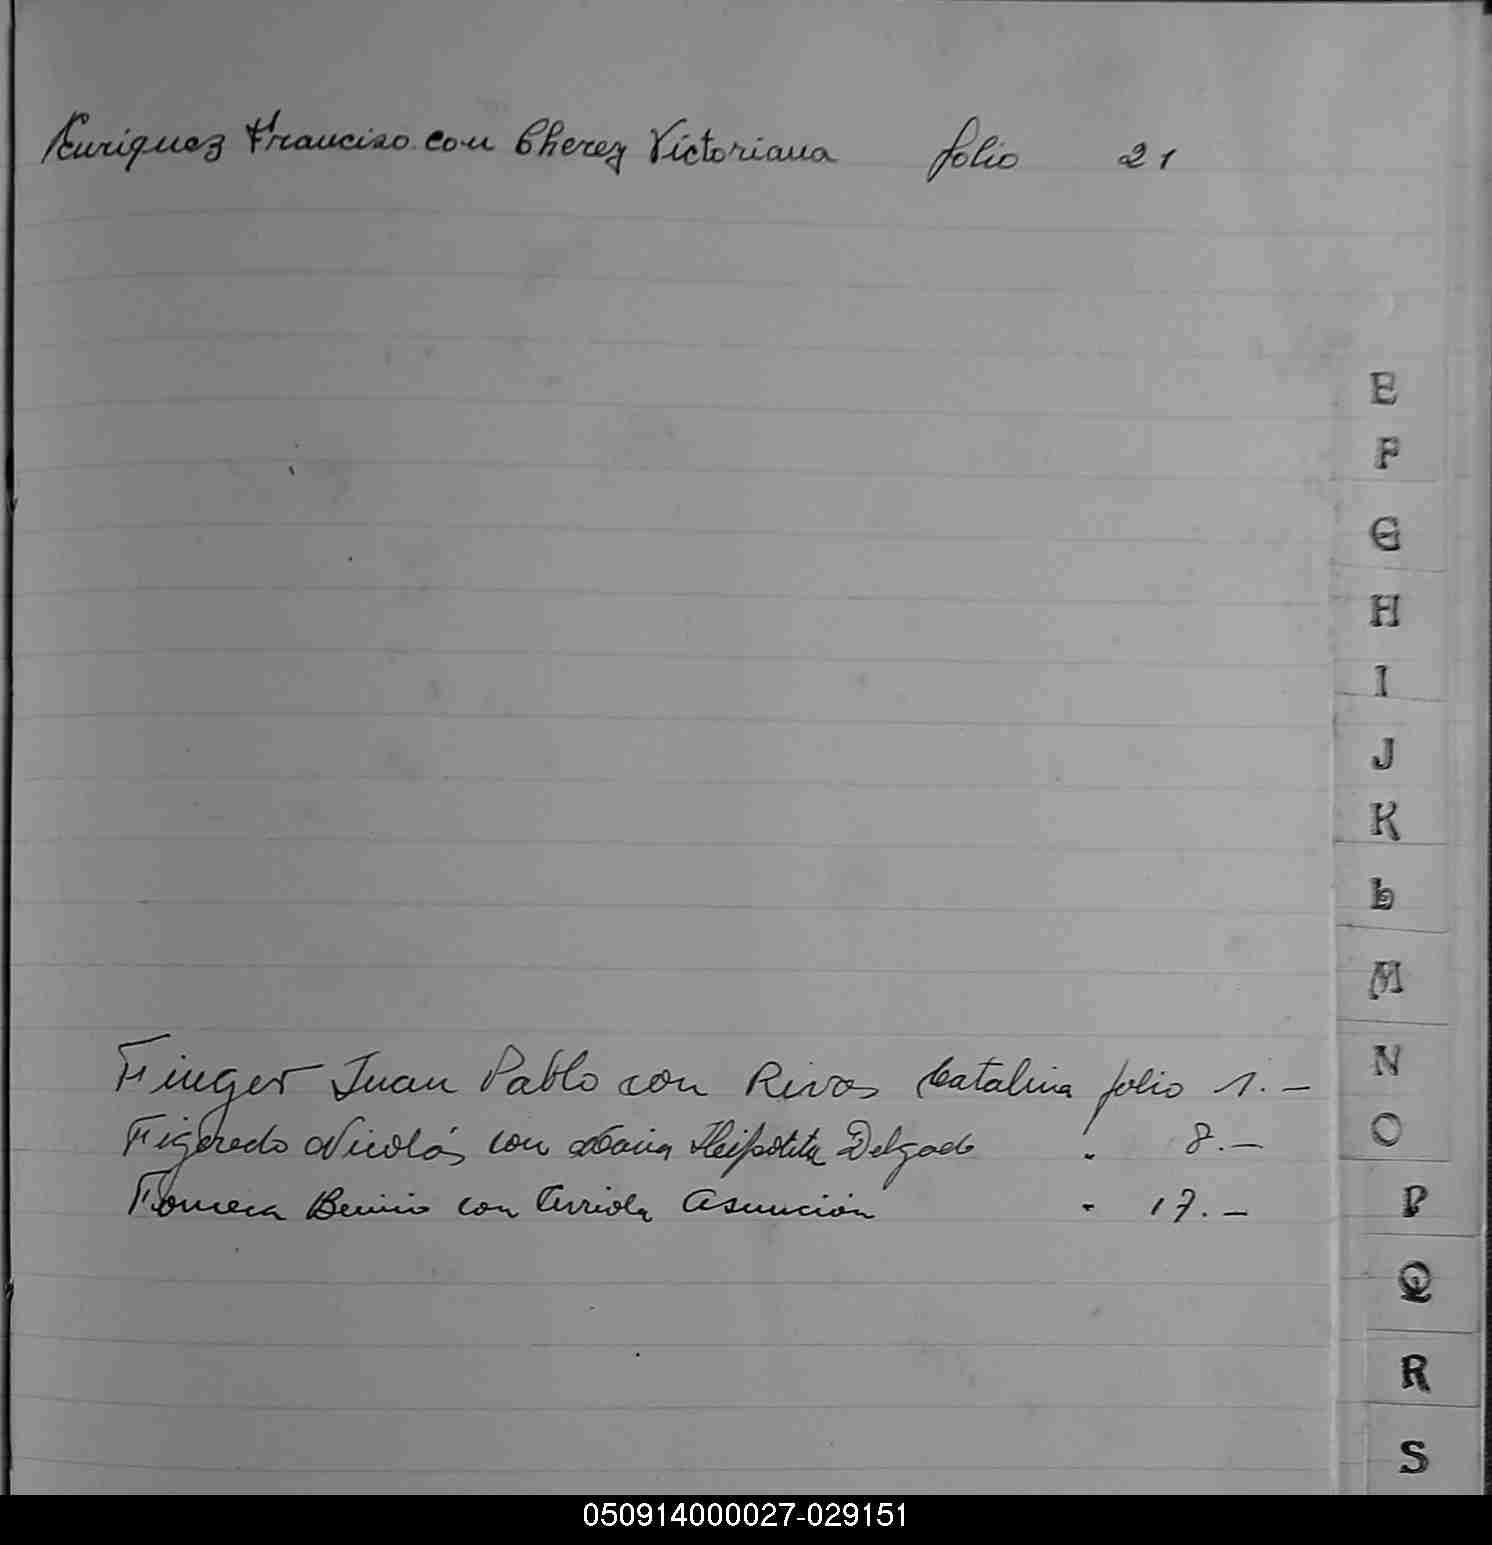 Enriquez Francisco con Cherez Victoriana folio 21
E
F
G
H
I
J
K
L
M
Finger Juan Pablo con Rivas Catalina folio 1.—
N
Figeredo Nicolás con Maria Heipolita Delgado " 8.—
O
Fonseca Benino con Arriola Asunción " 17.—
P
Q
R
S
050914000027-029151